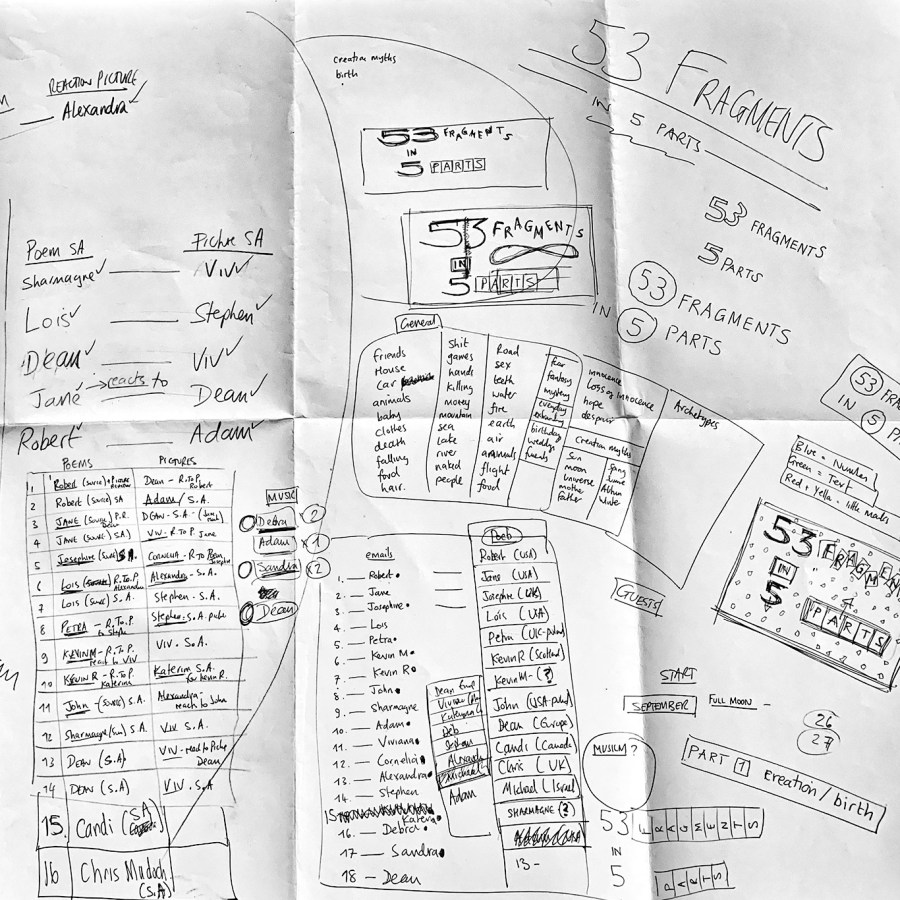 REACTION PICTURE
Alexandra
creation myths
birth
53 FRAGMENTS
IN
5 PARTS
53 FRAGMENTS
IN
5 PARTS
53 FRAGMENTS
IN 5 PARTS
53 FRAGMENTS
5 PARTS
53 FRAGMENTS
IN 5 PARTS
53 FRAG
IN 5 PA
Poem SA Picture SA
Sharmagne VIV
Lois Stephen
Dean VIV
Jane reacts to Dean
Robert Adam
POEMS PICTURES
1 Robert Dean - R.To P. Robert
2 Robert (SUSIE) SA Adam / S.A.
3 JANE P.R. Dean DEAN - S.A.
4 JANE S.A) VIV - R.To P. Jane
5 Josephine S.A. CORNELIA - R.To Poem Josephine
6 Lois R.To.P. Alexandra Alexandra - S.A.
7 Lois S.A. Stephen - S.A.
8 PETRA - R.To.P. to Steph Stephen - S.A.
9 KEVIN M - R.To.P. react to VIV VIV. S.A.
10 KEVIN R - R.To P. Katerina Katerina S.A. for Kevin R.
11 John S.A. Alexandra - react to John
12 Sharmagne S.A. VIV S.A.
13 DEAN (S.A) VIV - react to Dean
14 DEAN (S.A) VIV. S.A
15. Candi (SA
16 Chris Murdoch (S.A)
MUSIC
Debra 2
Adam 1
Sandra 2
Dean
General
friends
House
car
animals
baby
clothes
death
falling
food
hair.
Shit
games
hands
killing
money
mountain
sea
lake
river
naked
people
Road
sex
teeth
water
fire
earth
air
animals
flight
food
fear
fantasy
mystery
everyday
birthday
weddings
funerals
innocence
Loss of innocence
hope
despair
Creation myths
Sun
moon
universe
mother
father
Winter
Archetypes
Blue = Number
Green = Text
Red + Yella = little marks
53 FRAGMEN
IN
5 PARTS
emails
1. Robert
2. Jane
3. Josephine
4. Lois
5. Petra
6. Kevin M
7. Kevin R
8. John
9. Sharmagne
10. Adam
11. Viviana
12. Cornelia
13. Alexandra
14. Stephen
15 Katerina
16. Debra
17 Sandra
18 - Dean
Dean
Deb
Michael
Adam
Poets
Robert (USA)
Jane (USA)
Josephine (UK)
Lois (USA)
Petra
Kevin R (Scotland)
Kevin M - (?)
John
Dean (Europe)
Candi (Canada)
Chris (UK)
Michael (Israel
SHARMAGNE (?)
13 -
GUESTS
START
SEPTEMBER FULL MOON -
26
27
MUSIUM?
PART 1 Creation / birth
53 FRAGMENTS
IN
5 PARTS